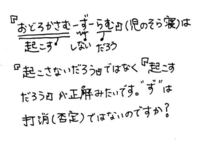 『おどろかさむーずーらむ』(児のそら寝)は
起こす しない だろう
『起こさないだろう』ではなく『起こす
だろう』が正解みたいです。"ず"は
打消(否定)ではないのですか?